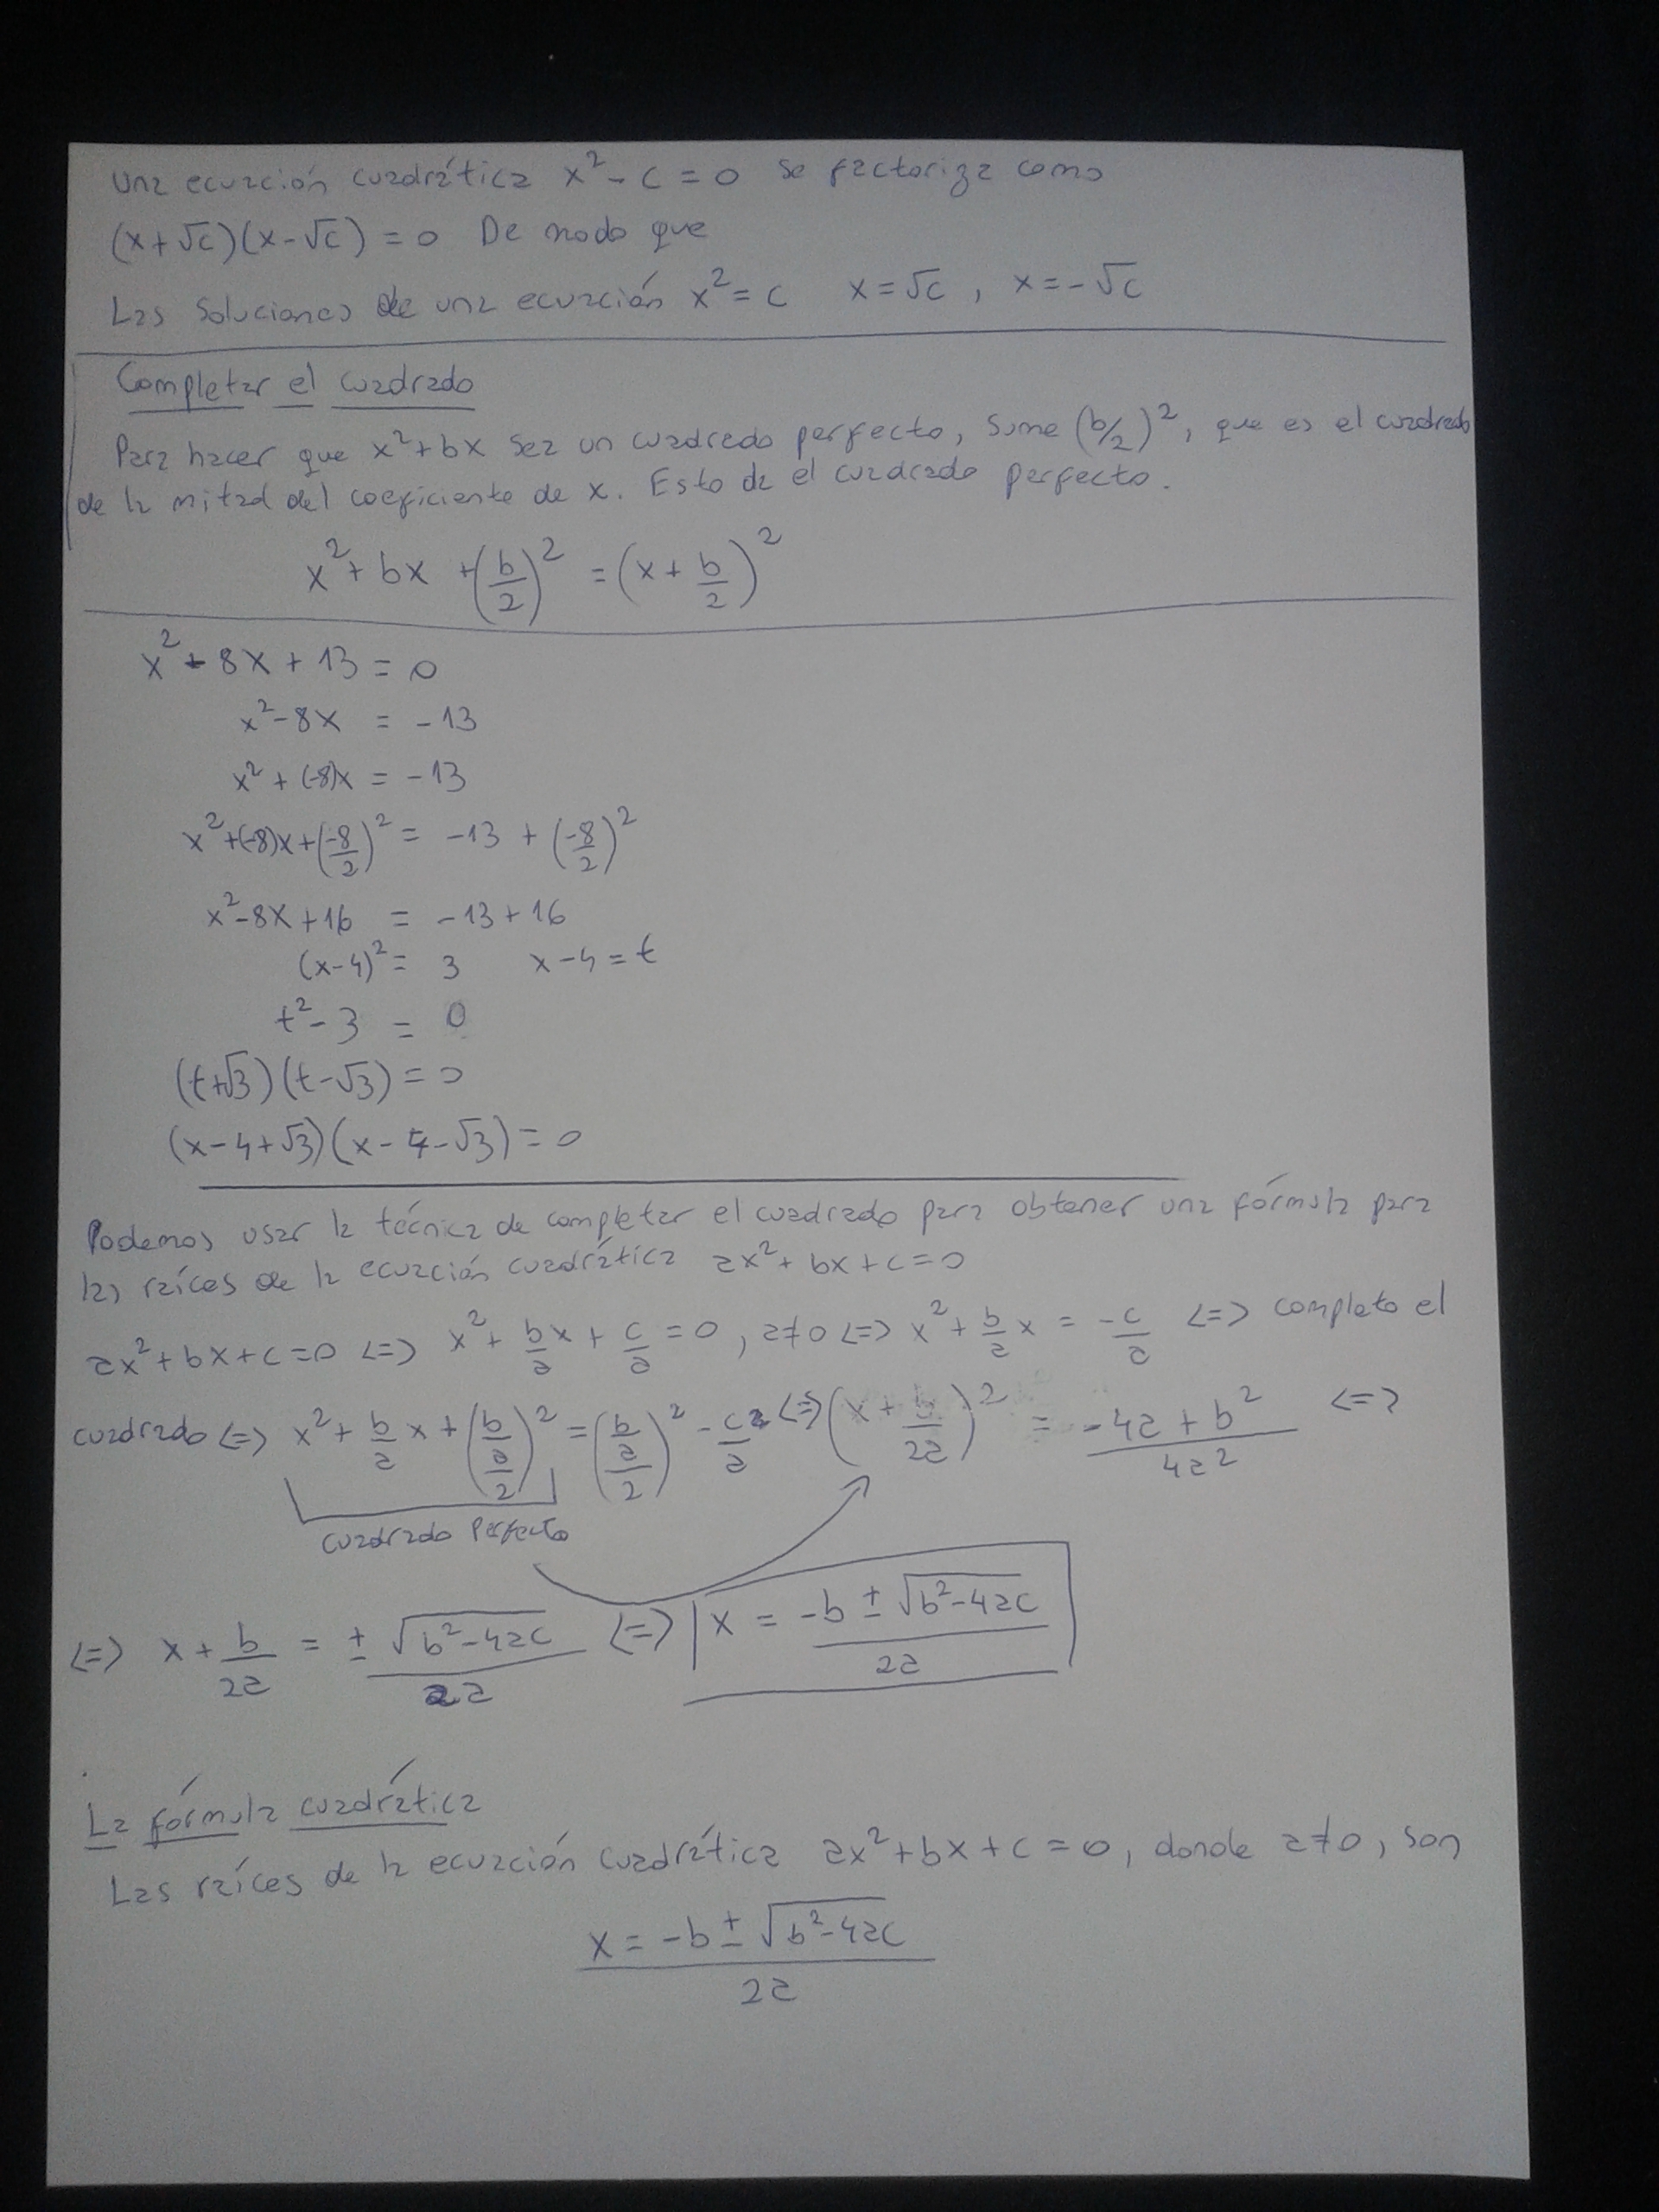 Una ecuación cuadrática x² - c = 0 se factoriza como
(x+√c)(x-√c) = 0 De modo que
Las soluciones de una ecuación x² = c x = √c , x = -√c
Completar el cuadrado
Para hacer que x² + bx sea un cuadrado perfecto, Sume (b/2)², que es el cuadrado
de la mitad del coeficiente de x. Esto da el cuadrado perfecto.
x² + bx + (b/2)² = (x + b/2)²
x² - 8x + 13 = 0
x² - 8x = -13
x² + (-8)x = -13
x² + (-8)x + (-8/2)² = -13 + (-8/2)²
x² - 8x + 16 = -13 + 16
(x-4)² = 3 x-4 = t
t² - 3 = 0
(t+√3)(t-√3) = 0
(x-4+√3)(x-4-√3) = 0
Podemos usar la técnica de completar el cuadrado para obtener una fórmula para
las raíces de la ecuación cuadrática ax² + bx + c = 0
ax² + bx + c = 0 <=> x² + b/a x + c/a = 0 , a≠0 <=> x² + b/a x = -c/a <=> completo el
cuadrado <=> x² + b/a x + (b/a/2)² = (b/a/2)² - c/a <=> (x + b/2a)² = -4a + b²/4a² <=>
cuadrado Perfecto
<=> x + b/2a = ± √b²-4ac/2a <=> x = -b ± √b²-4ac/2a
La fórmula cuadrática
Las raíces de la ecuación cuadrática ax² + bx + c = 0, donde a≠0, son
x = -b ± √b²-4ac/2a